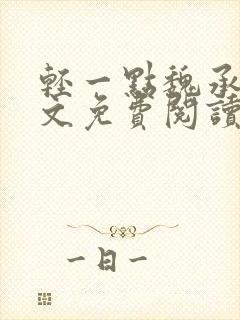 輕一點魏承
文免費閱讀
一日一